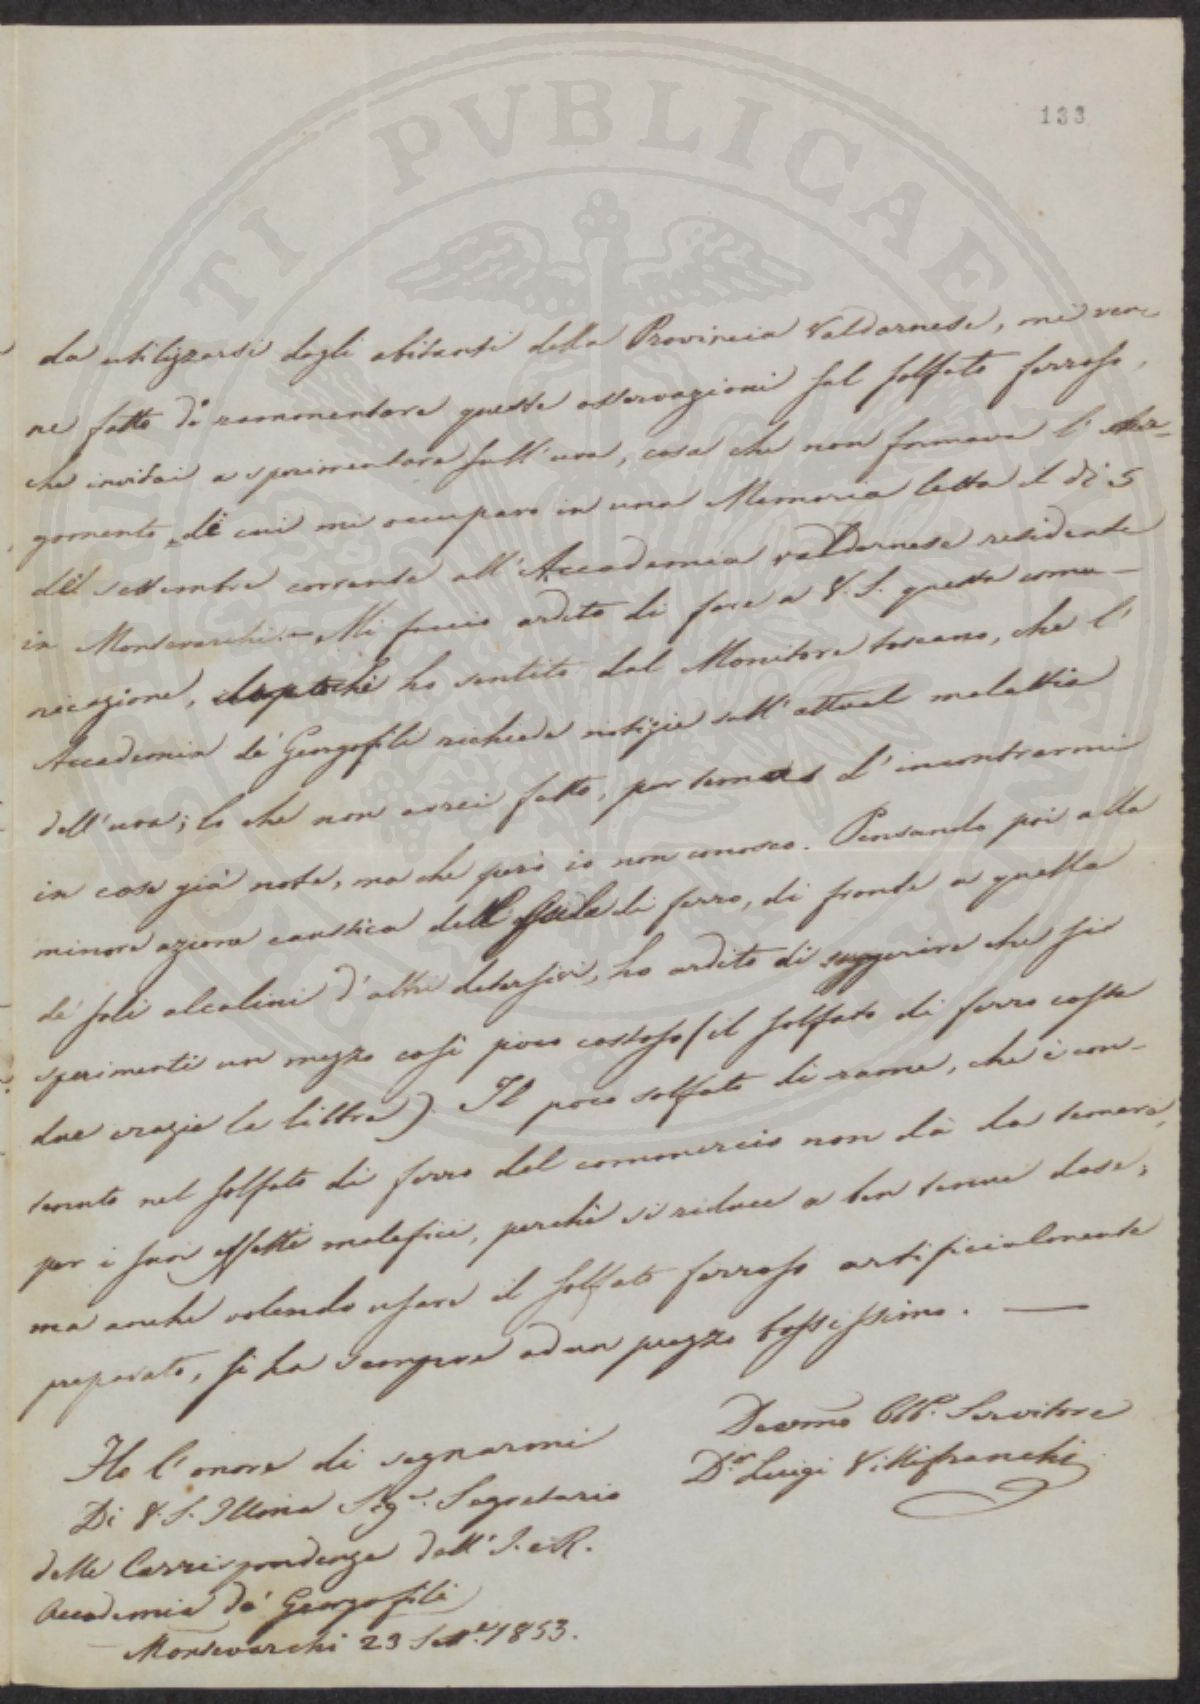 PROSPERITATI PVBLICAE
133
da utilizzarsi dagli abitanti della Provincia Valdarnese, mi ven-
ne fatto di rammentare queste osservazioni sul solfato ferroso,
che invitai a sperimentare sull'uva, cosa che non formava l'
gomento di cui mi occupavo in una Memoria letta il dì 5
del settembre corrente all'Accademia valdarnese residente
in Montevarchi. — Mi faccio ardito di fare a V. S. questa comu-
nicazione, ho sentito dal Monitore toscano, che l'
Accademia de' Georgofili richiede notizie sull'attual malattia
dell'uva; lo che non avrei fatto, per temere d'incontrarmi
in cose già note, ma che però io non conosco. Pensando poi alla
minore azione caustica di ferro, di fronte a quella
de' sali alcalini d'altri detersivi, ho ardito di suggerire che si
sperimenti un mezzo così poco costoso (il solfato di ferro costa
due crazie la libbra). Il poco solfato di rame, che è con-
tenuto nel solfato di ferro del commercio non dà da temere,
per i suoi effetti malefici, perché si riduce a ben tenue dose;
ma anche volendo usare il solfato ferroso artificialmente
preparato, si ha sempre ad un prezzo bassissimo. —
Ho l'onore di segnarmi
Di V. S. Illma Sigr. Segretario
delle Corrispondenze dell'I. e R.
Accademia de' Georgofili
Montevarchi 23 Sette. 1853.
Devmo Obb. Servitore
Dor Luigi Villifranchi